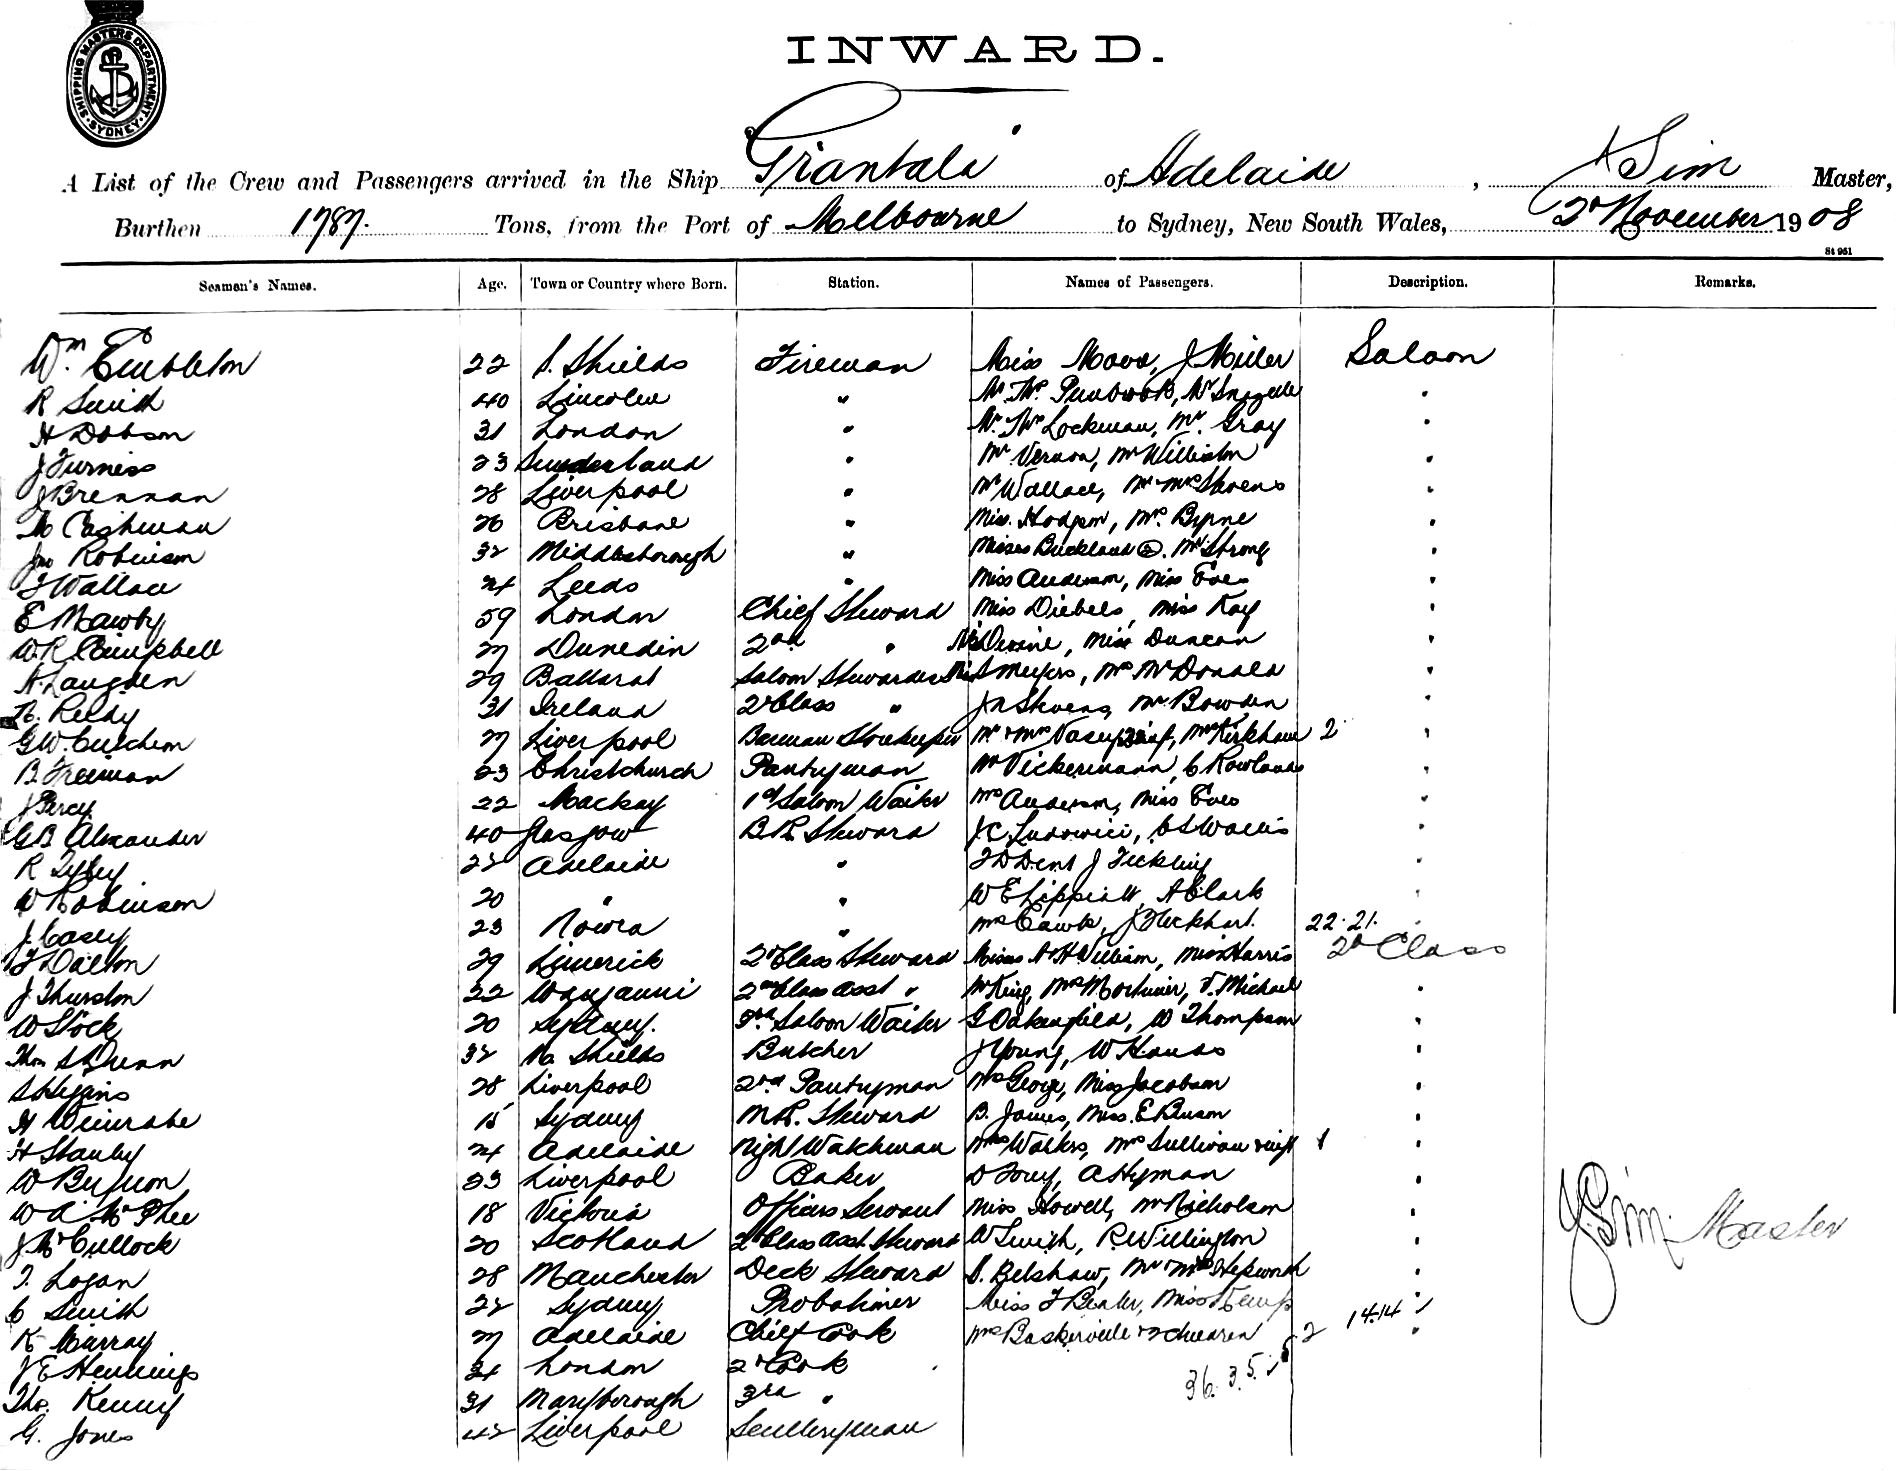 SHIPPING MASTERS DEPARTMENT SYDNEY
INWARD.
A List of the Crew and Passengers arrived in the Ship Grantala of Adelaide, J Sim Master,
Burthen 1787. Tons, from the Port of Melbourne to Sydney, New South Wales, 2d November 1908
St 951
Seamen's Names. Age. Town or Country where Born. Station. Names of Passengers. Description. Remarks.
Wm Embleton 22 S. Shields Fireman Miss Mood, J Miller Saloon
R Smith 40 Lincoln " Mr Snagelle
H Dobson 31 London " Lockman, Mr. Gray
J Furniss 23 Sunderland " Mr Vernon, Mr Williston
J Brennan 28 Liverpool " Mr Wallace, Mr Mrs Stevens
Cashman 26 Brisbane " Miss. Hodgson, Mrs. Byrne
Jno Robinson 32 Middlesborough " Misses Buckland 2. Mr Strong
J Wallace 24 Leeds " Miss Anderson, Miss Eves
E Mawby 59 London Chief Steward Miss Diebels, Miss Kay
W R Campbell 27 Dunedin 2nd " Devine, Miss Duncan
A. Langden 29 Ballarat Saloon Stewardess Meyers, Mrs McDonald
N. Reidy 31 Ireland 2d Class " J N Stevens, Mr Bowden
G W. Cutchem 27 Liverpool Barman Storekeeper Mr & Mrs Vasey & inf, Mrs Kirkham 2
B. Freeman 23 Christchurch Pantryman Mr Vickermann, C Rowlands
J Percy 22 Mackay 1st Saloon Waiter Mrs Anderson, Miss Eves
G B Alexander 40 Glasgow B. R. Steward J C Ludowici, C S Wallis
R 22 Adelaide " F D Dent J Tickling
W Robinson 20 " " W E Lippiatt, A Clark
J. Casey 23 Nowra " Mrs Cawte, J Lickhart. 22.21.
J Dalton 29 Limerick 2d Class Steward Misses A H William, Miss Harris 2d Class
J Thurston 22 Wanganui 2nd Class Asst " Mr King, Mrs Mortimer, V. Michael
W Stock 20 Sydney. 3rd Saloon Waiter G Oakenfield, W Thompson
Thos S Brenn 32 No. Shields Butcher J Young, W Hands
S Higgins 28 Liverpool 2nd Pantryman Mrs George, Miss Jacobson
H Weinrabe 15 Sydney M. R. Steward B. James, Miss. E Benson
H Stanley 24 Adelaide Night Watchman Mrs Walters, Mrs Sullivan & inft 1
W 23 Liverpool Baker D Tory, A Hyman
W A McPhee 18 Victoria Officers Servant Miss Howell, Mr Nicholson
J. McCullock 20 Scotland 2d Class Asst. Steward W Smith, R. Willington
T. Logan 28 Manchester Deck Steward S. Belshaw, Mr Mrs Hepworth
C Smith 22 Sydney Probationer Miss F Bealer, Miss Kemp
K Murray 27 Adelaide Chief Cook Mrs Baskerville & 2 children 2 14.14
J E Hennings 34 London 2d Cook
Tho. Kenny 31 Maryborough 3rd " 36.3.5.
G. Jones 42 Liverpool Sculleryman
J. Sim. Master